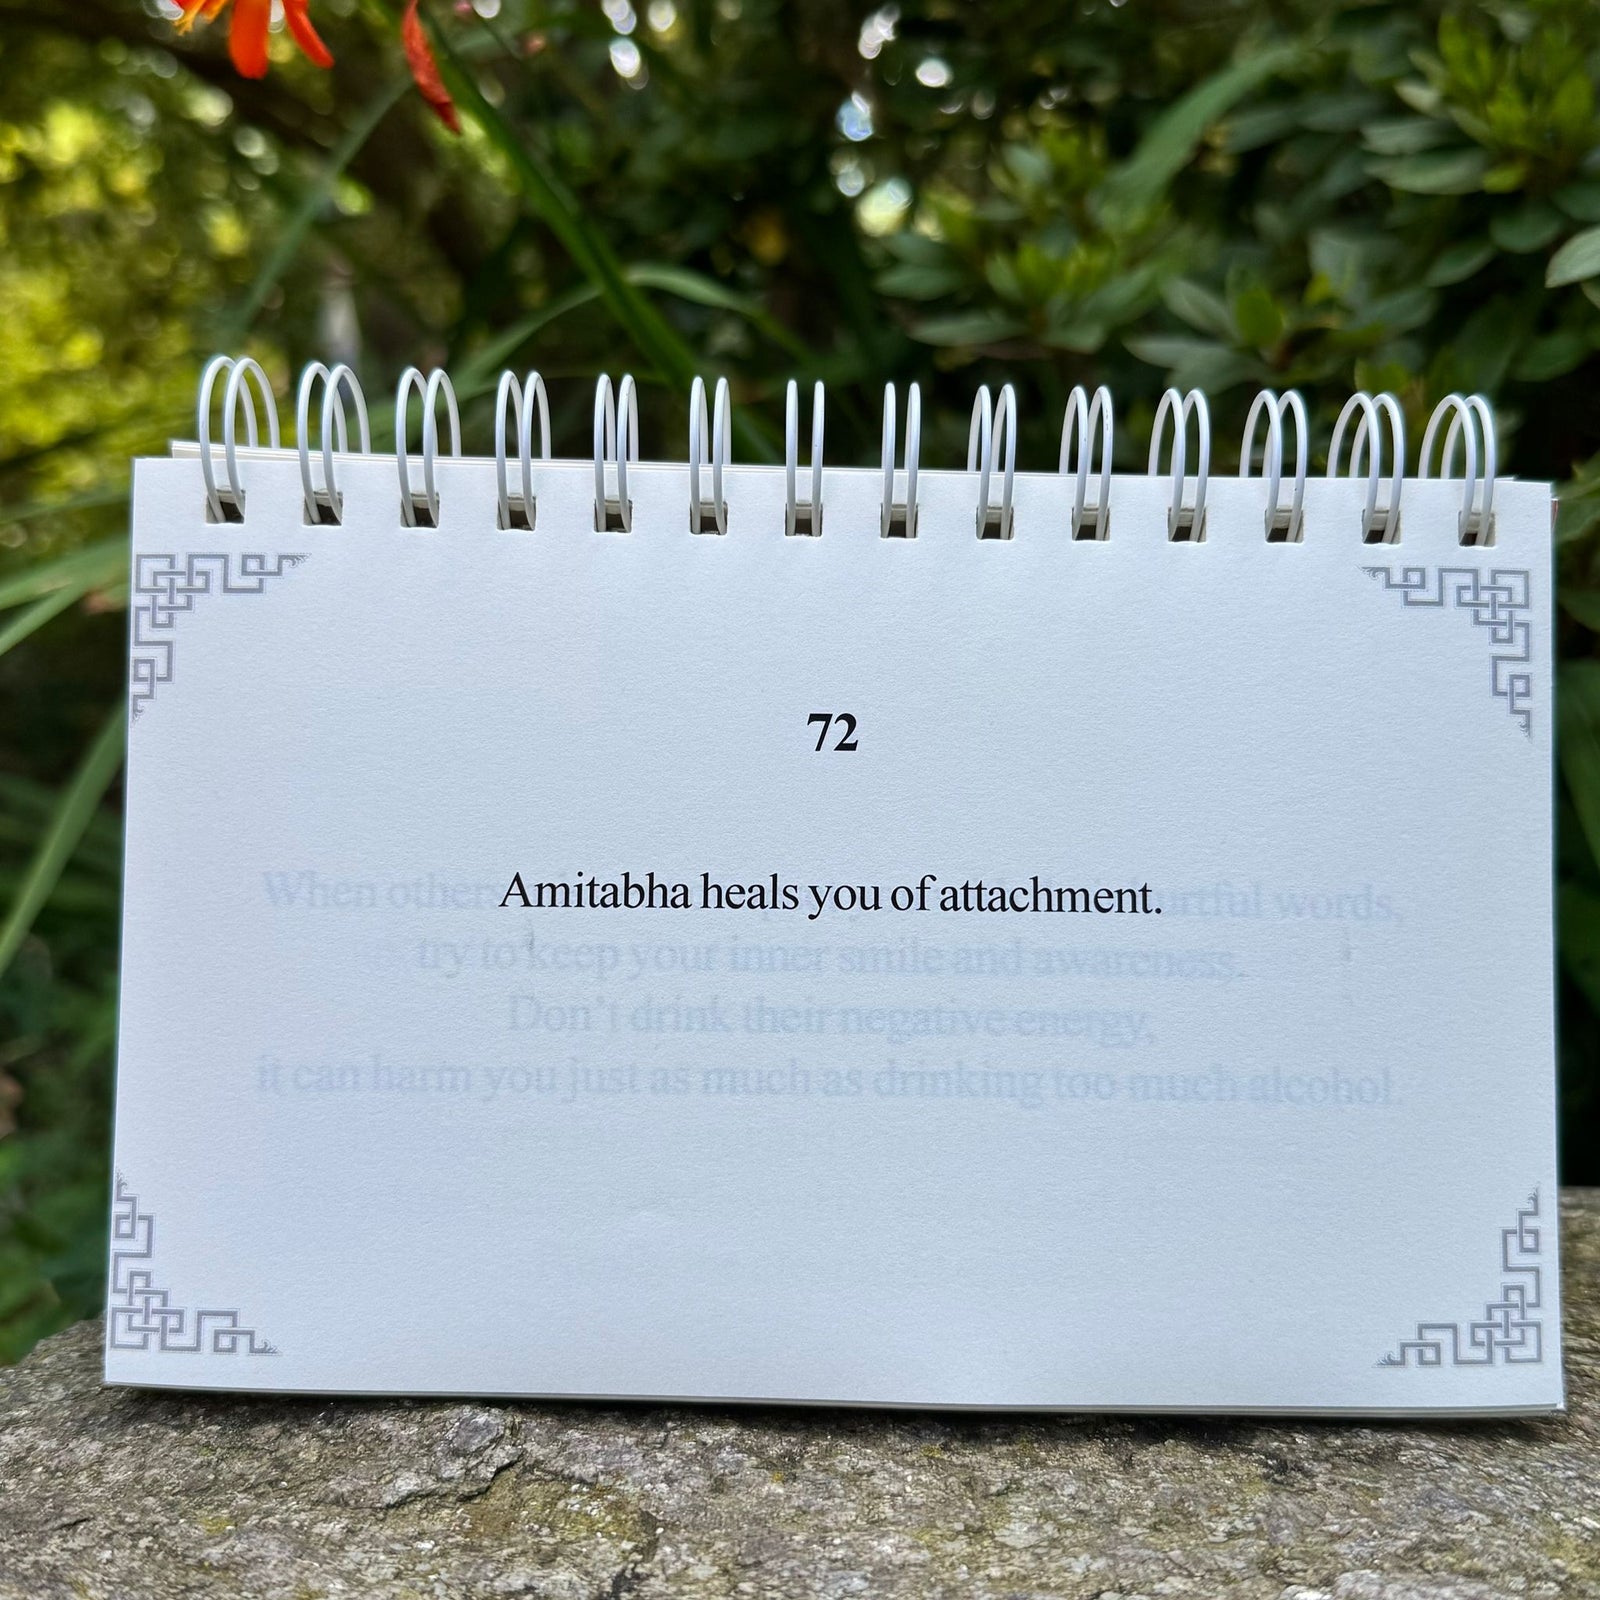 72
Amitabha heals you of attachment.
When others hurtful words,
try to keep your inner smile and awareness.
Don't drink their negative energy,
it can harm you just as much as drinking too much alcohol.